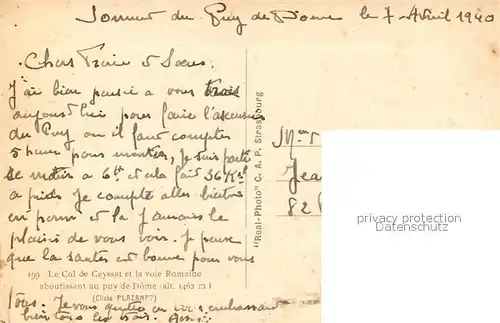 Sommet du Puy de Dome le 7 Avril 1940
Chers Frère et Sœur,
J'ai bien pensé a vous trois
aujourd'hui pour faire l'ascension
du Puy ou il faut compter
5 heures pour monter, Je suis parti
ce matin a 6h et cela fait 36 Kil
a pieds Je compte aller bientot
en perm et la J'aurais le
plaisir de vous voir. Je pense
que la santée est bonne pour vous
199 Le Col de Ceyssat et la voie Romaine
aboutissant au puy de Dôme (alt. 1462 m)
(Cliché PLAZANET)
tous. Je vous quitte en vous embrassant
bien tous les trois.
"Real-Photo" C. A. P. Strasbourg
Jea
82
privacy protection
oldthing.de